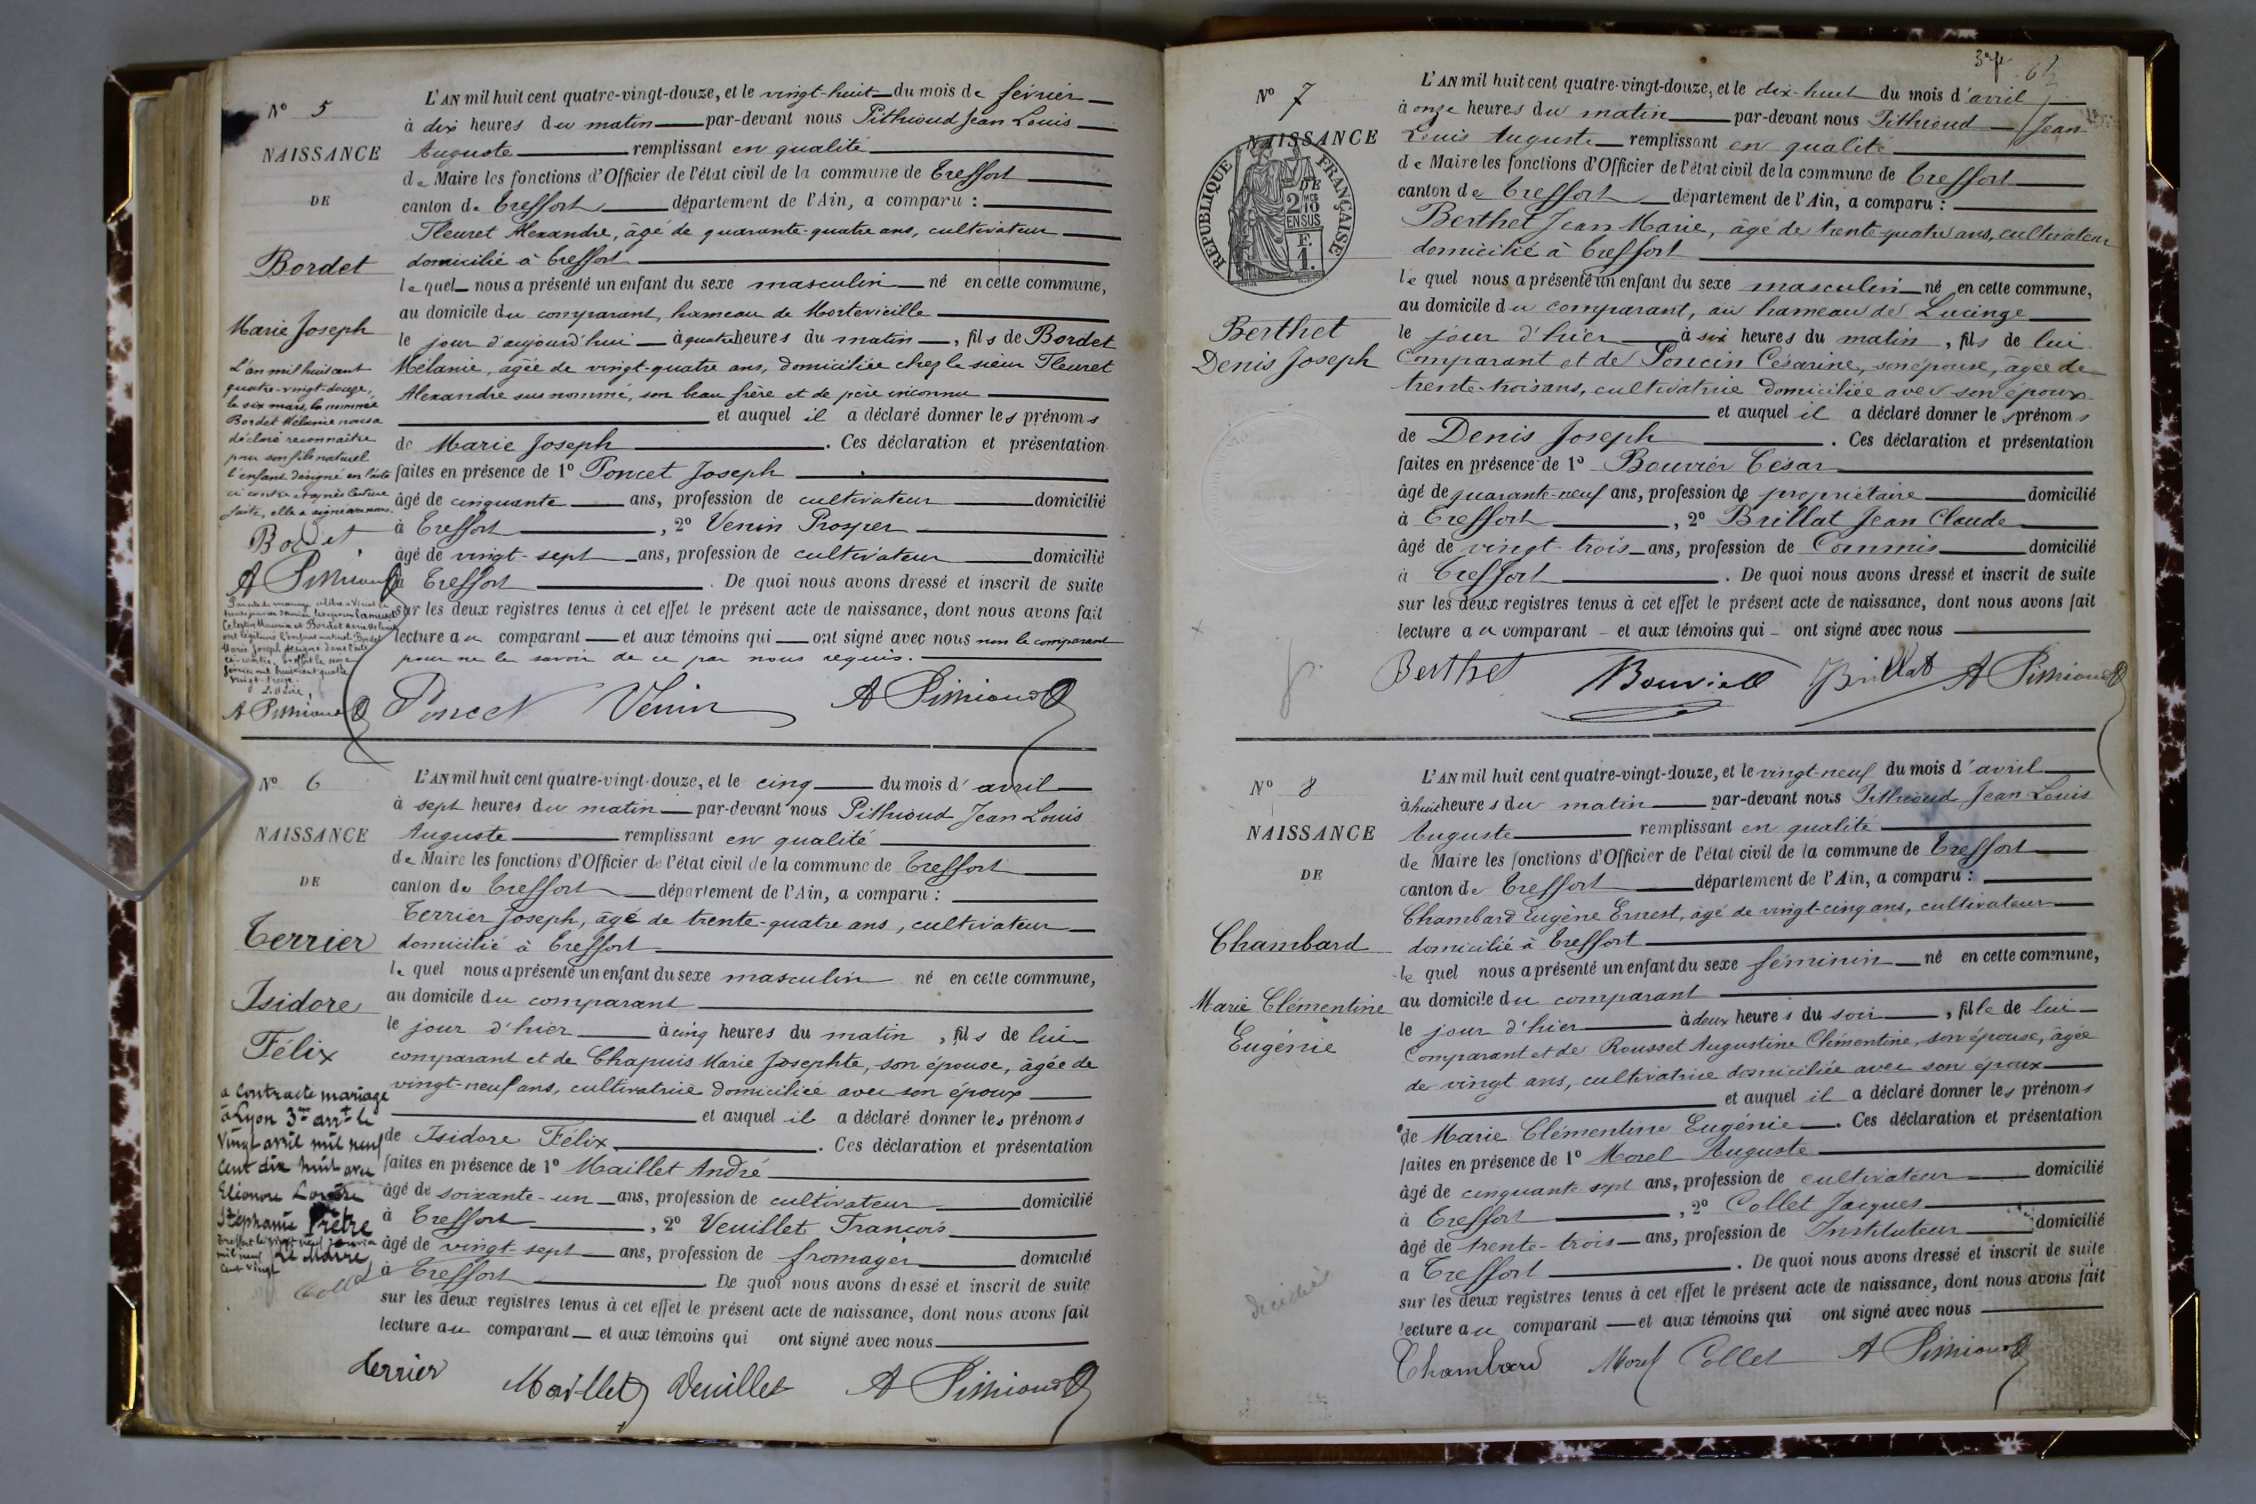 Nº 5
NAISSANCE
DE
Bordet
Marie Joseph
L'an mil huit cent
quatre-vingt-douze,
le six mars, la nommée
Bordet Mélanie nous a
déclaré reconnaître
pour son fils naturel
l'enfant désigné en l'acte
ci contre et après lecture
faite, elle a signé avec nous.
Bordet
A Pithioud
Celestin Maurice et Bordet
ont légitimé l'enfant naturel Bordet
Marie Joseph désigné dans l'acte
ci-contre. Treffort le
mil huit cent quatre
vingt-treize.
Le Maire,
A Pithioud
L'AN mil huit cent quatre-vingt-douze, et le vingt-huit du mois de février
à dix heures du matin par-devant nous Pithioud Jean Louis
Auguste remplissant en qualité
de Maire les fonctions d'Officier de l'état civil de la commune de Treffort
canton de Treffort département de l'Ain, a comparu :
Fleuret Alexandre, âgé de quarante-quatre ans, cultivateur
domicilié à Treffort
lequel nous a présenté un enfant du sexe masculin né en cette commune,
au domicile du comparant, hameau de Montevieille
le jour d'aujourd'hui à quatre heures du matin, fils de Bordet
Mélanie, âgée de vingt-quatre ans, domiciliée chez le sieur Fleuret
Alexandre sus nommé, son beau frère et de père inconnu
et auquel il a déclaré donner les prénoms
de Marie Joseph. Ces déclaration et présentation
faites en présence de 1º Poncet Joseph
âgé de cinquante ans, profession de cultivateur domicilié
à Treffort, 2º Venin Prosper
âgé de vingt-sept ans, profession de cultivateur domicilié
à Treffort. De quoi nous avons dressé et inscrit de suite
sur les deux registres tenus à cet effet le présent acte de naissance, dont nous avons fait
lecture au comparant et aux témoins qui ont signé avec nous non le comparant
pour ne le savoir de ce par nous requis.
Poncet Venin A Pithioud
Nº 6
NAISSANCE
DE
Terrier
Isidore
Félix
a contracté mariage
à Lyon 3me arrt le
vingt avril mil neuf
cent dix huit avec
Eléonore
Stéphanie Prêtre
Treffort le vingt neuf janvier
mil neuf
cent vingt
Le Maire
Collet
L'AN mil huit cent quatre-vingt-douze, et le cinq du mois d'avril
à sept heures du matin par-devant nous Pithioud Jean Louis
Auguste remplissant en qualité
de Maire les fonctions d'Officier de l'état civil de la commune de Treffort
canton de Treffort département de l'Ain, a comparu :
Terrier Joseph, âgé de trente-quatre ans, cultivateur
domicilié à Treffort
lequel nous a présenté un enfant du sexe masculin né en cette commune,
au domicile du comparant
le jour d'hier à cinq heures du matin, fils de lui
comparant et de Chapuis Marie Josephte, son épouse, âgée de
vingt-neuf ans, cultivatrice domiciliée avec son époux
et auquel il a déclaré donner les prénoms
de Isidore Félix. Ces déclaration et présentation
faites en présence de 1º Maillet André
âgé de soixante-un ans, profession de cultivateur domicilié
à Treffort, 2º Veuillet François
âgé de vingt-sept ans, profession de fromager domicilié
à Treffort De quoi nous avons dressé et inscrit de suite
sur les deux registres tenus à cet effet le présent acte de naissance, dont nous avons fait
lecture au comparant et aux témoins qui ont signé avec nous
Terrier Maillet Veuillet A Pithioud
Nº 7
NAISSANCE
RÉPUBLIQUE FRANÇAISE
DE
2 10
EN SUS
F.
1.
Berthet
Denis Joseph
L'AN mil huit cent quatre-vingt-douze, et le dix-huit du mois d'avril
à onze heures du matin par-devant nous Pithioud Jean
Louis Auguste remplissant en qualité
de Maire les fonctions d'Officier de l'état civil de la commune de Treffort
canton de Treffort département de l'Ain, a comparu :
Berthet Jean Marie, âgé de trente-quatre ans, cultivateur
domicilié à Treffort
lequel nous a présenté un enfant du sexe masculin né en cette commune,
au domicile du comparant, au hameau de Lucinge
le jour d'hier à six heures du matin, fils de lui
comparant et de Poncin Césarine, son épouse, âgée de
trente-trois ans, cultivatrice domiciliée avec son époux
et auquel il a déclaré donner les prénoms
de Denis Joseph. Ces déclaration et présentation
faites en présence de 1º Bouvier César
âgé de quarante-neuf ans, profession de propriétaire domicilié
à Treffort, 2º Brillat Jean Claude
âgé de vingt-trois ans, profession de Commis domicilié
à Treffort. De quoi nous avons dressé et inscrit de suite
sur les deux registres tenus à cet effet le présent acte de naissance, dont nous avons fait
lecture au comparant et aux témoins qui ont signé avec nous
Berthet Bouvier Brillat A Pithioud
Nº 8
NAISSANCE
DE
Chambard
Marie Clémentine
Eugénie
décédée
L'AN mil huit cent quatre-vingt-douze, et le vingt-neuf du mois d'avril
à huit heures du matin par-devant nous Pithioud Jean Louis
Auguste remplissant en qualité
de Maire les fonctions d'Officier de l'état civil de la commune de Treffort
canton de Treffort département de l'Ain, a comparu :
Chambard Eugène Ernest, âgé de vingt-cinq ans, cultivateur
domicilié à Treffort
lequel nous a présenté un enfant du sexe féminin né en cette commune,
au domicile du comparant
le jour d'hier à deux heures du soir, fille de lui
comparant et de Rousset Augustine Clémentine, son épouse, âgée
de vingt ans, cultivatrice domiciliée avec son époux
et auquel il a déclaré donner les prénoms
de Marie Clémentine Eugénie. Ces déclaration et présentation
faites en présence de 1º Morel Auguste
âgé de cinquante sept ans, profession de cultivateur domicilié
à Treffort, 2º Collet Jacques
âgé de trente-trois ans, profession de Instituteur domicilié
à Treffort. De quoi nous avons dressé et inscrit de suite
sur les deux registres tenus à cet effet le présent acte de naissance, dont nous avons fait
lecture au comparant et aux témoins qui ont signé avec nous
Chambard Morel Collet A Pithioud